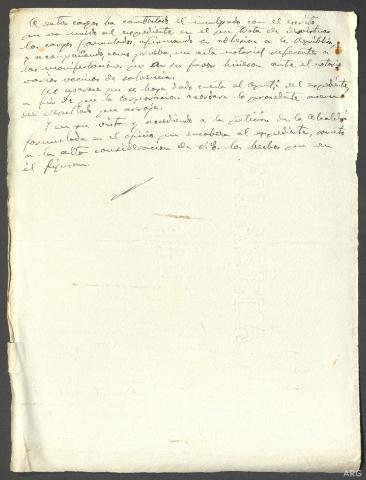 A estos cargos ha contestado el inculpado con el escrito
que va unido al expediente en el que trata de desvirtuar
los cargos formulados, afirmando su adhesión a la República
y acompañando como prueba un acta notarial referente a
las manifestaciones que en su favor hicieron ante el notario
varios vecinos de solvencia.
No aparece que se haya dado cuenta al Ayuntº del expediente
a fin de que la Corporación acordara lo procedente acerca
del resultado que arroja.
Y en su vista y accediendo a la petición de la Alcaldía
formulada en el oficio que encabeza el expediente, someto
a la alta consideración de V.E. los hechos que en
él figuran.
ARG